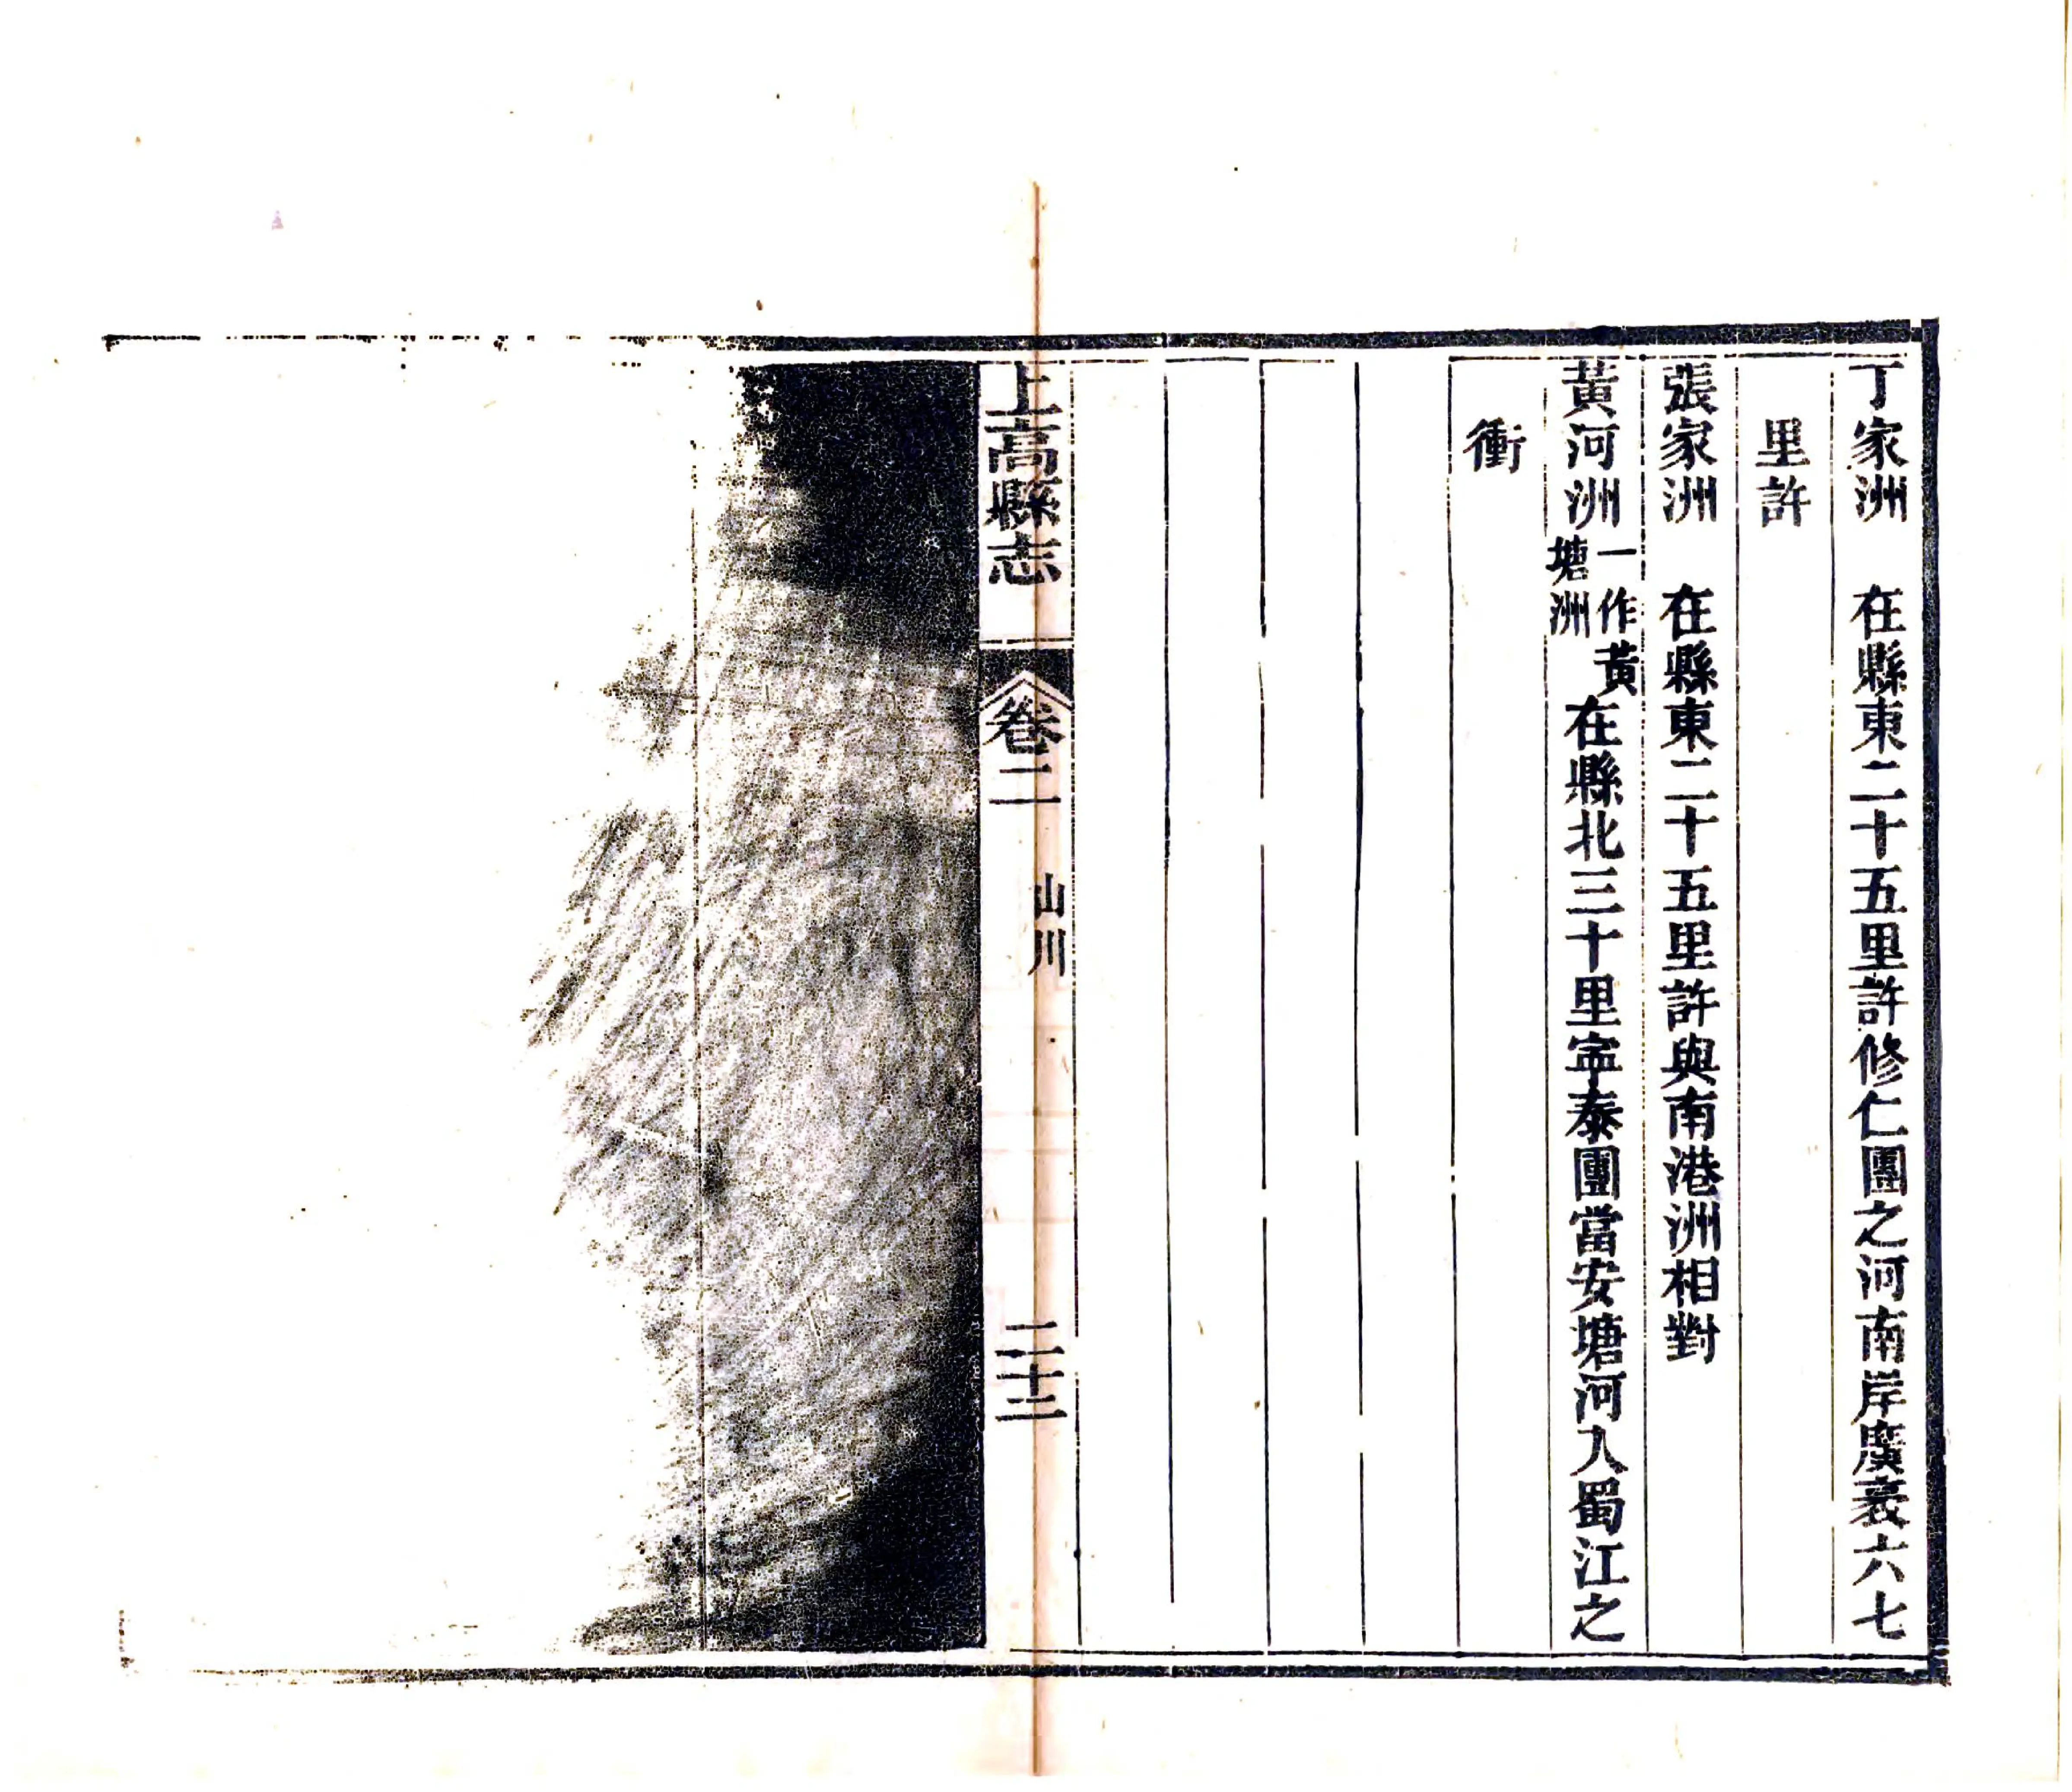 丁家洲　在縣東二十五里許修仁團之河南岸廣袤六七
里許
張家洲　在縣東二十五里許與南港洲相對
黃河洲一作黃塘洲在縣北三十里寕泰團當安塘河入蜀江之
衝
上高縣志　卷二　山川　二十二